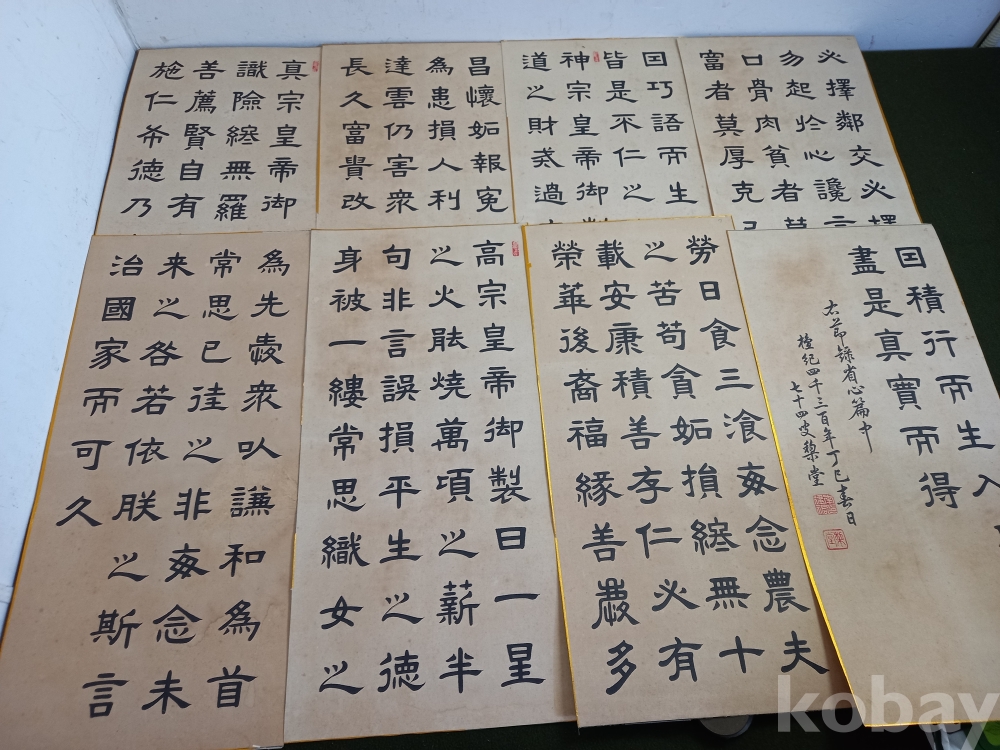 真宗皇帝御
識險終無羅
善薦賢自有
施仁布德乃
昌懷妬報冤
為患損人利
達雲仍害衆
長久富貴改
因巧語而生
皆是不仁之
神宗皇帝御製
道之財戒過
必擇鄰交必擇
勿起於心讒言
口骨肉貧者莫
富者莫厚克己
為先愛衆以謙和為首
常思已往之非每念未
来之咎若依朕之斯言
治國家而可久
高宗皇帝御製曰一星
之火能燒萬頃之薪半
句非言誤損平生之德
身被一縷常思織女之
勞日食三飡每念農夫
之苦苟貪妬損終無十
載安康積善存仁必有
榮華後裔福緣善慶多
因積行而生入
盡是真實而得
右節錄省心篇中
檀紀四千三百年丁巳春日
七十四叟黎堂
kobay